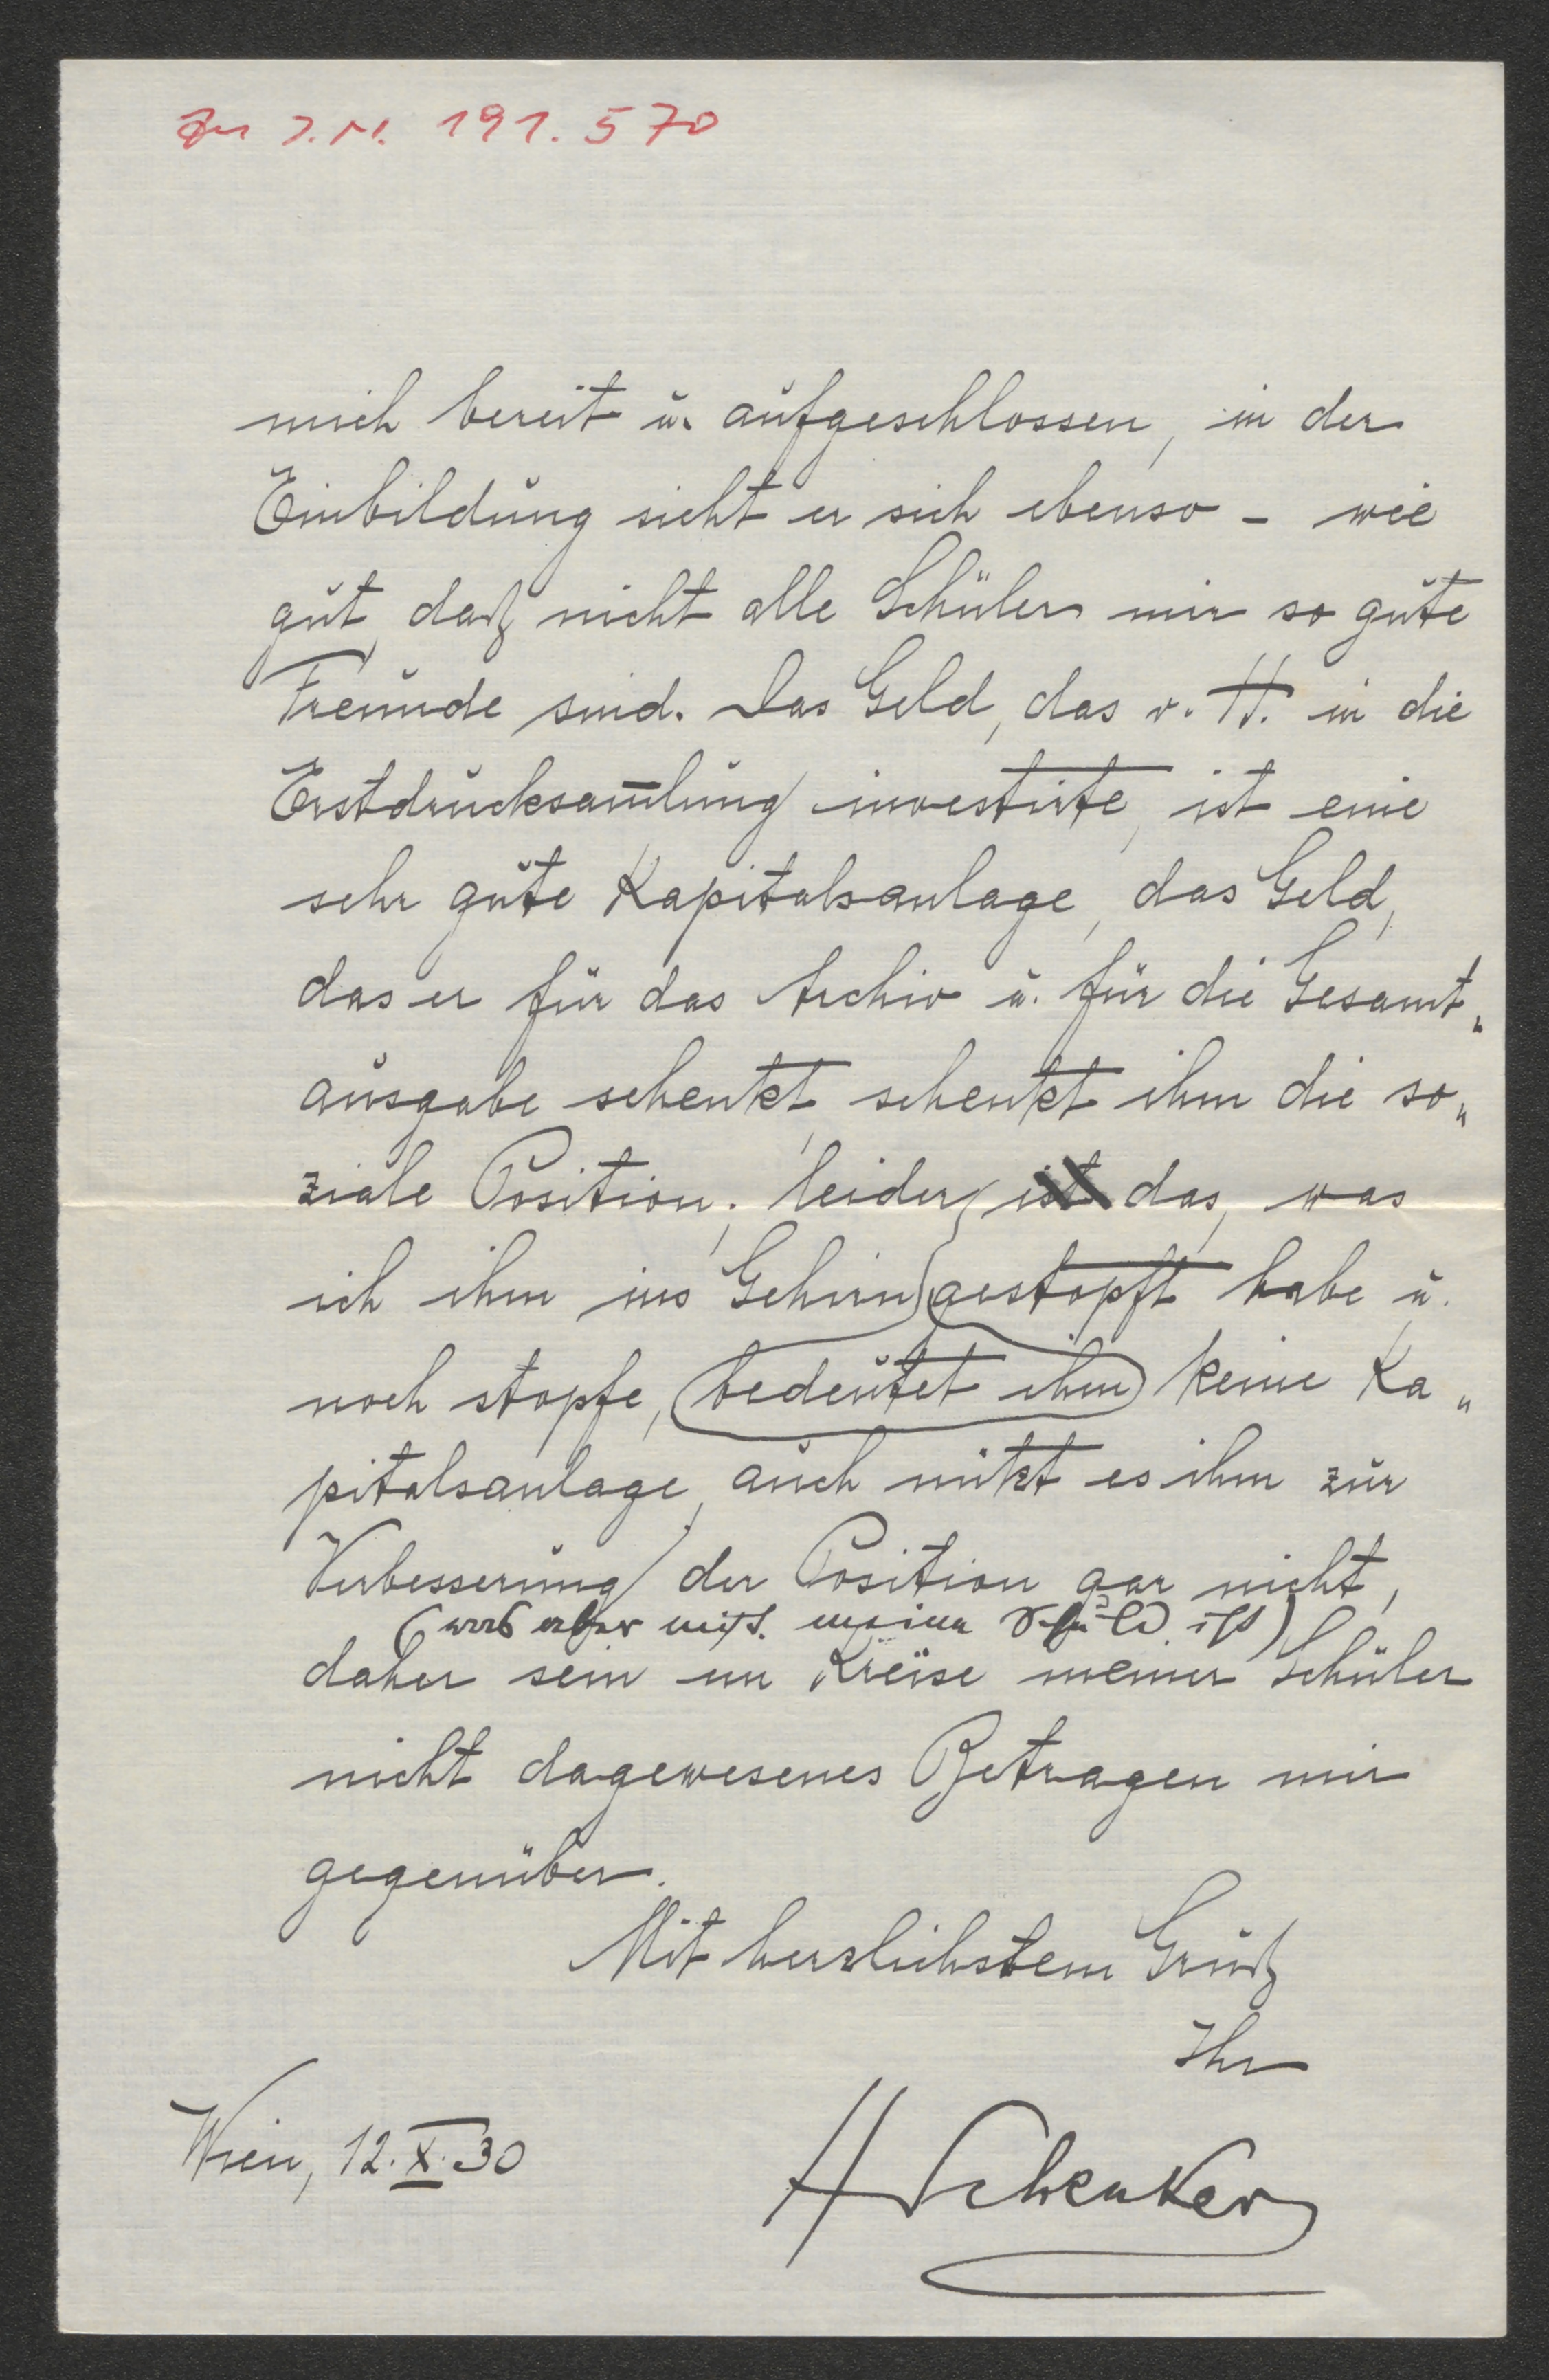 Zu I.N. 191.570
mich bereit u. aufgeschlossen, in der
Einbildung sieht er sich ebenso – wie
gut, daß nicht alle Schüler mir so gute
Freunde sind. Das Geld, das v. H. in die
Erstdrucksam̅lung investirte, ist eine
sehr gute Kapitalsanlage, das Geld,
das er für das Archiv u. für die Gesamt„
ausgabe schenkt, schenkt ihm die so„
ziale Position; leider ist das, was
ich ihm ins Gehirn gestopft habe u.
noch stopfe, bedeutet ihm keine Ka„
pitalsanlage, auch nützt es ihm zur
Verbesserung der Position gar nicht,
(was aber nicht meine Schuld ist)
daher sein im Kreise meiner Schüler
nicht dagewesenes Betragen mir
gegenüber.
Mit herzlichstem Gruß
Ihr
Wien, 12. X. 30
H Schenker